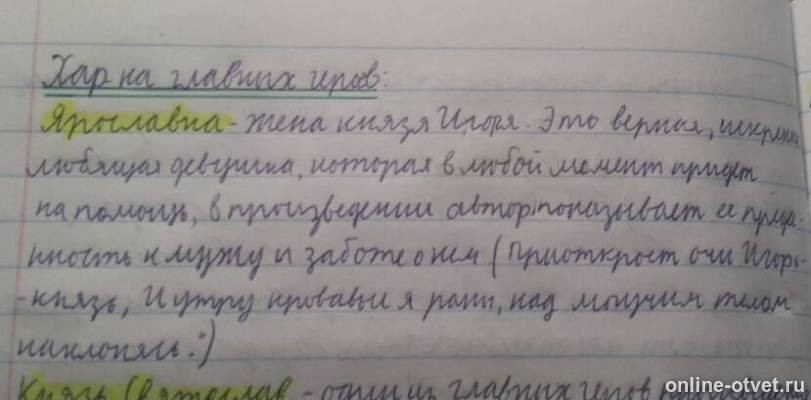 Хар на главных геров:
Ярославна - жена князя Игоря. Это верная, искренне
любящая девушка, которая в любой момент придет
на помощь, в произведении автор показывает ее преда-
нность к мужу и заботе о нем (Приоткроет очи Игорь-
-князь, И утру кровавые я раны, над могучим телом
наклонясь.")
Князь Святослав - один из главных геров
online-otvet.ru